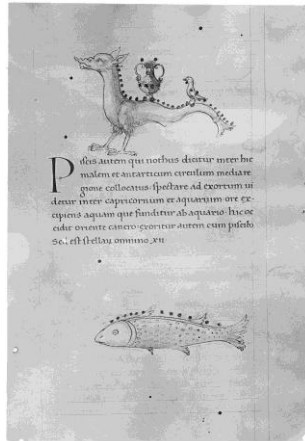 Piscis autem qui nothus dicitur inter hie
malem et antarticum circulum media re
gione collocatus. spectare ad exortum ui
detur inter capricornum et aquarium ore ex
cipiens aquam que funditur ab aquario. hic oc
cidit oriente cancro. exoritur autem cum piscib;
Sed est stellarum omnino xii